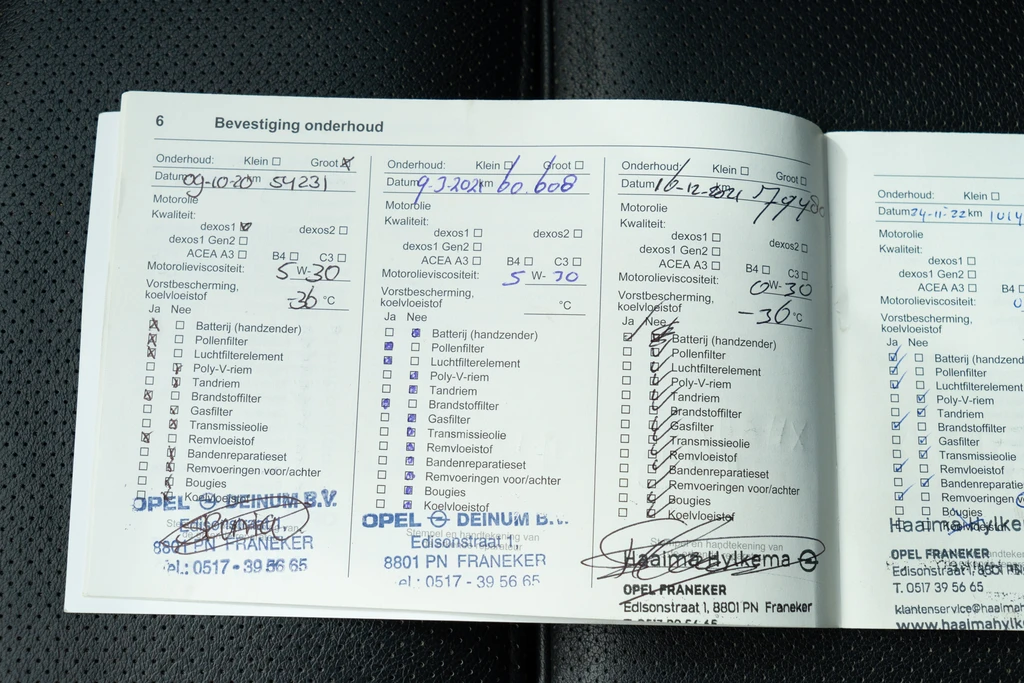 6 Bevestiging onderhoud
Onderhoud: Klein Groot
Datum 09-10-20 km 54231
Motorolie
Kwaliteit:
dexos1 dexos2
dexos1 Gen2
ACEA A3 B4 C3
Motorolieviscositeit: 5 W-30
Vorstbescherming,
koelvloeistof -36 °C
Ja Nee
Batterij (handzender)
Pollenfilter
Luchtfilterelement
Poly-V-riem
Tandriem
Brandstoffilter
Gasfilter
Transmissieolie
Remvloeistof
Bandenreparatieset
Remvoeringen voor/achter
Bougies
Koelvloeistof
OPEL DEINUM B.V.
Edisonstraat 1
8801 PN FRANEKER
Tel.: 0517 - 39 56 65
Onderhoud: Klein Groot
Datum 9-3-2021 km 60 608
Motorolie
Kwaliteit:
dexos1 dexos2
dexos1 Gen2
ACEA A3 B4 C3
Motorolieviscositeit: 5 W- 30
Vorstbescherming,
koelvloeistof °C
Ja Nee
Batterij (handzender)
Pollenfilter
Luchtfilterelement
Poly-V-riem
Tandriem
Brandstoffilter
Gasfilter
Transmissieolie
Remvloeistof
Bandenreparatieset
Remvoeringen voor/achter
Bougies
Koelvloeistof
OPEL DEINUM B.V.
Stempel en handtekening van
Edisonstraat 1
8801 PN FRANEKER
el.: 0517 - 39 56 65
Onderhoud: Klein Groot
Datum 16-12-2021
Motorolie
Kwaliteit:
dexos1 dexos2
dexos1 Gen2
ACEA A3 B4 C3
Motorolieviscositeit: 0W-30
Vorstbescherming,
koelvloeistof -36 °C
Ja Nee
Batterij (handzender)
Pollenfilter
Luchtfilterelement
Poly-V-riem
Tandriem
Brandstoffilter
Gasfilter
Transmissieolie
Remvloeistof
Bandenreparatieset
Remvoeringen voor/achter
Bougies
Koelvloeistof
Stempel en handtekening van
Haaima Hylkema
OPEL FRANEKER
Edisonstraat 1, 8801 PN Franeker
Onderhoud: Klein
Datum 24-11-22 km
Motorolie
Kwaliteit:
dexos1
dexos1 Gen2
ACEA A3 B4
Motorolieviscositeit:
Vorstbescherming,
koelvloeistof
Ja Nee
Batterij (handzend
Pollenfilter
Luchtfilterelement
Poly-V-riem
Tandriem
Brandstoffilter
Gasfilter
Transmissieolie
Remvloeistof
Bandenreparatie
Remvoeringen
Bougies
Haaima Hylke
OPEL FRANEKER
Edisonstraat 1, 8801 PN
T. 0517 39 56 65
klantenservice@haaim
www.haaimahylk